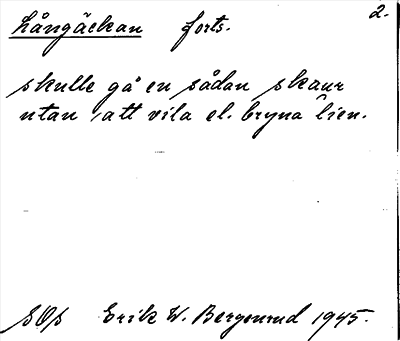 2.
Långäckan forts.
skulle gå en sådan skaur
utan att vila el. bryna lien.
SOp Erik W. Bergenrud 1945.